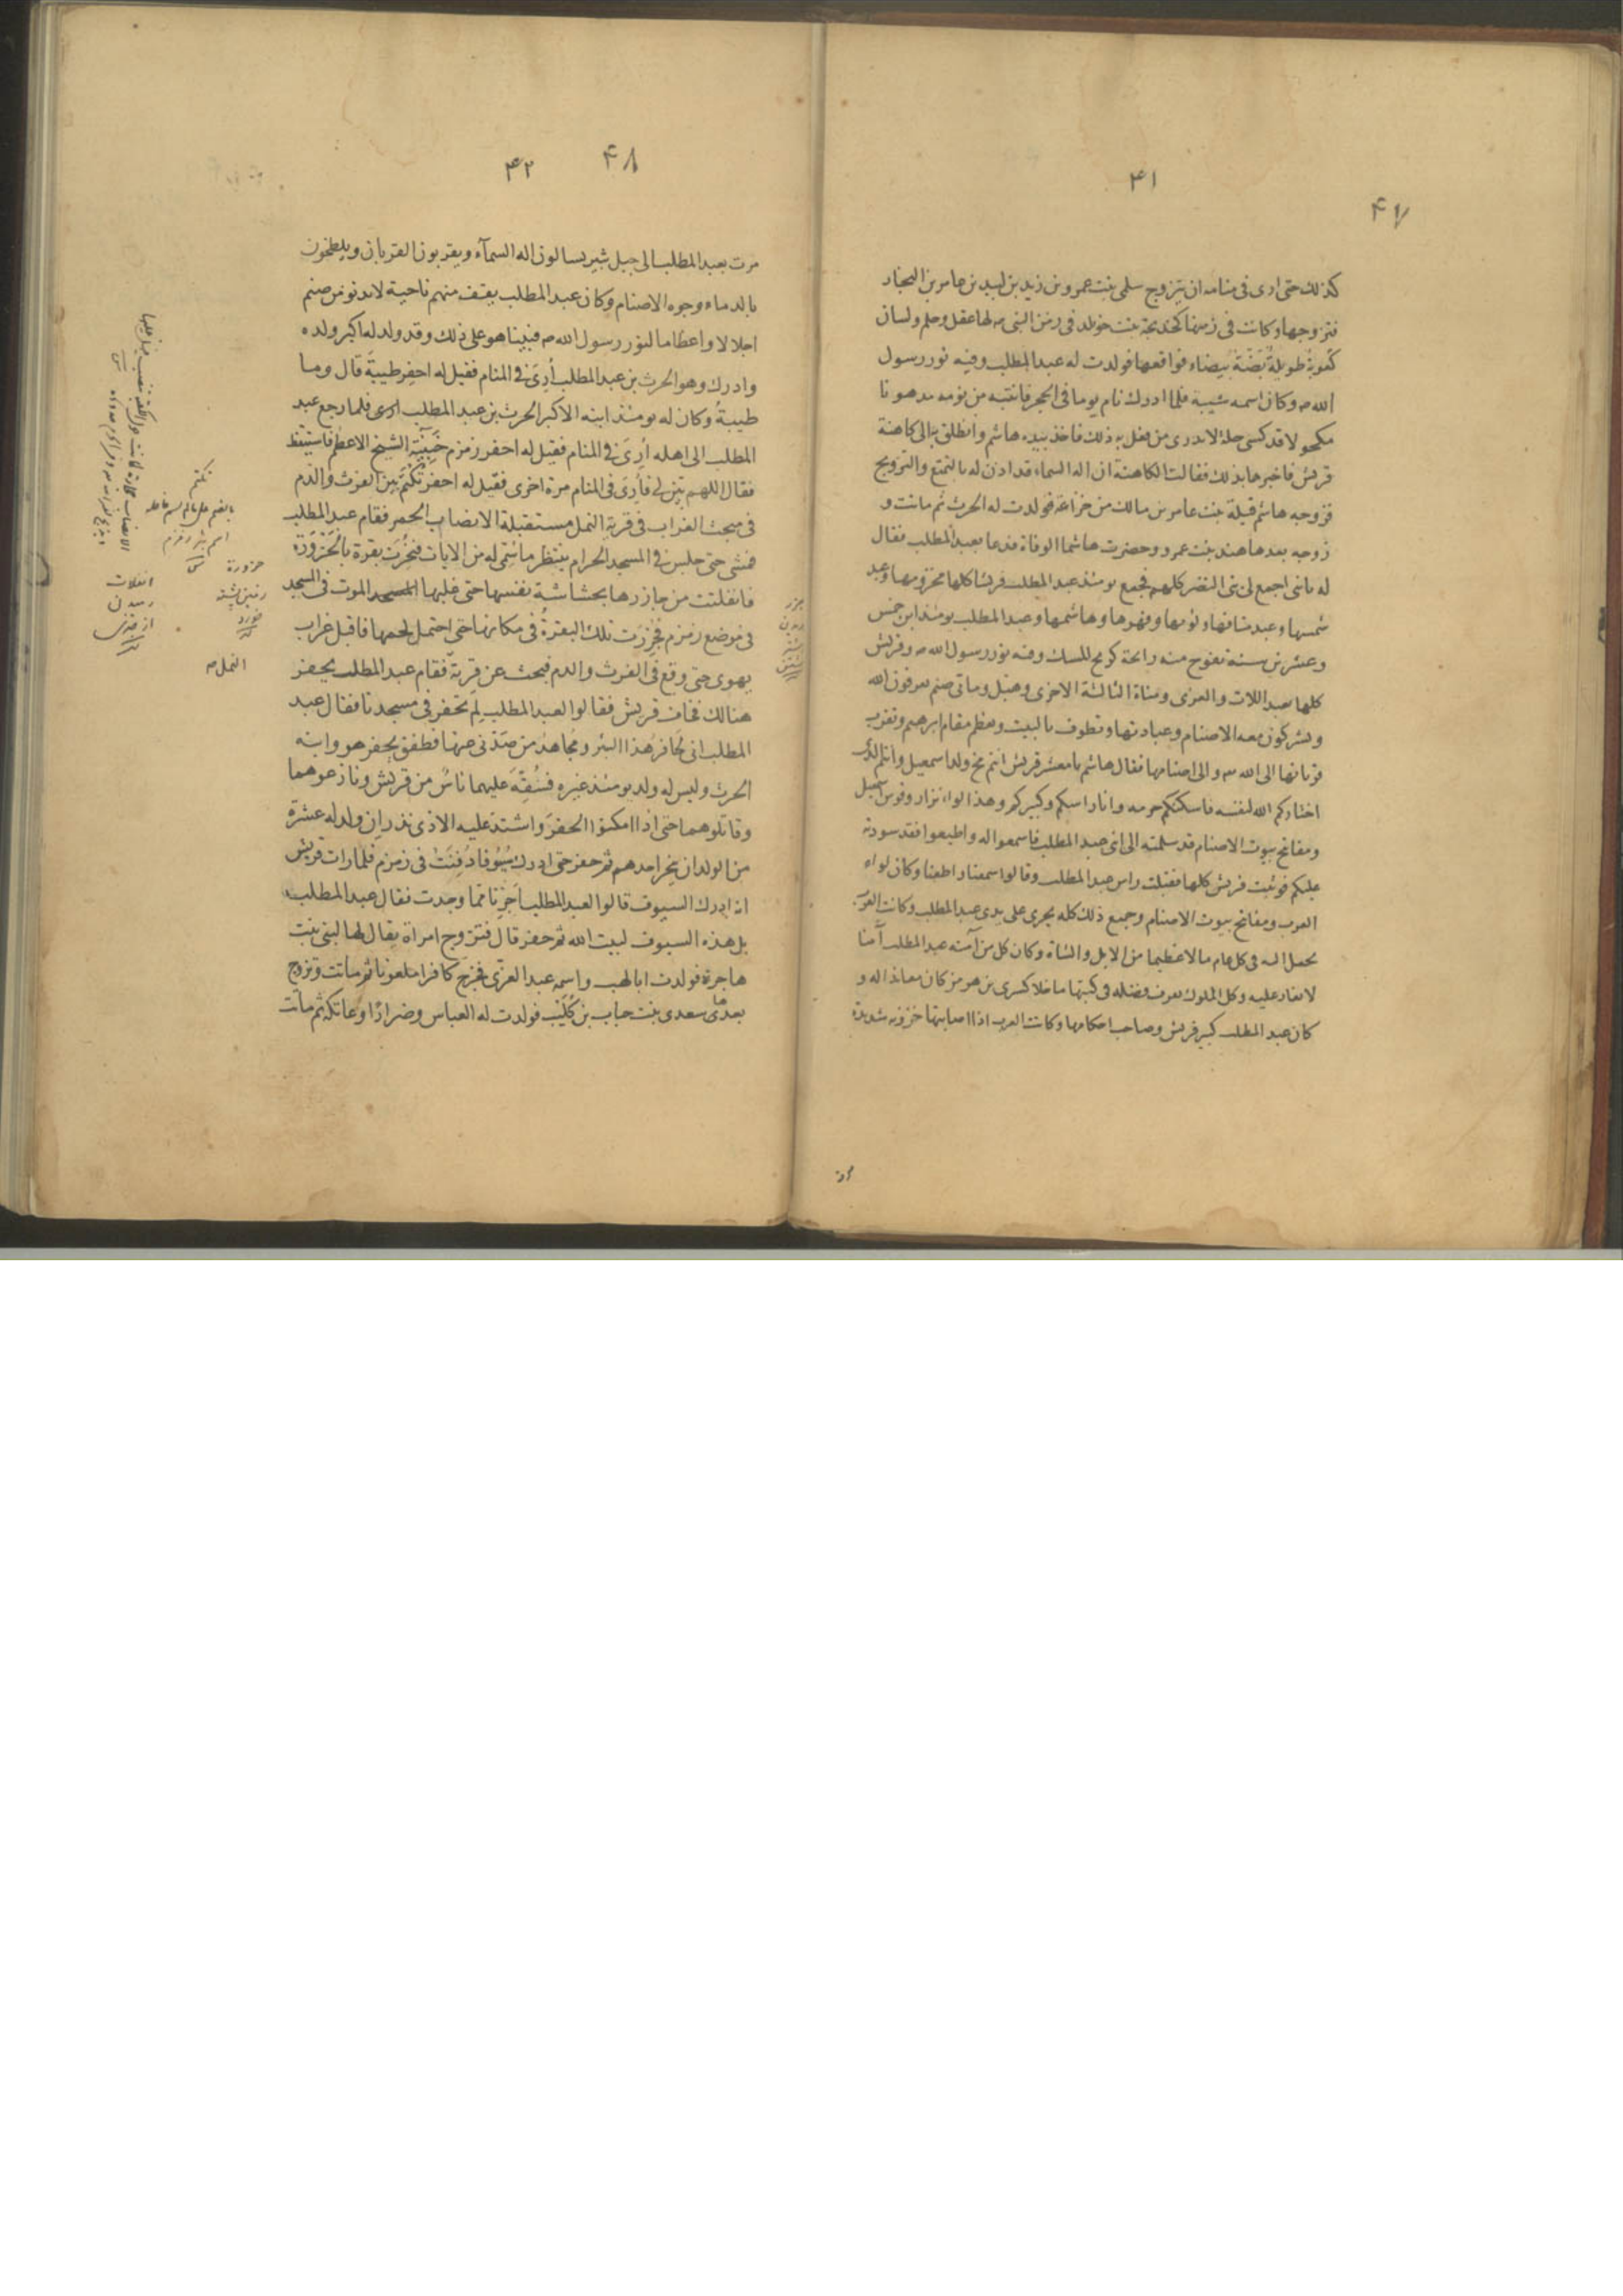 ۴۱
۴۷
كذلك حتى ارى فى منامه ان يتزوج سلمى بنت عمرو بن زيد بن لبيد بن عامر بن النجار
فتزوجها وكانت فى زمنها كخديجة بنت خويلد فى زمن النبى ص لها عقل وحلم ولسان
طويلة بيضاء فواقعها فولدت له عبد المطلب وفيه نور رسول
الله ص وكان اسمه شيبة فلما ادرك نام يوما فى الحجر فانتبه من نومه مدهونا
مكحولا قد كسى حلة لا يدرى من فعل به ذلك فاخذ بيده هاشم وانطلق به الى كاهنة
قريش فاخبرها بذلك فقالت الكاهنة ان اله السماء قد اذن له بالتمتع والتزويج
فزوجه هاشم قيلة بنت عامر بن مالك من خزاعة فولدت له الحرث ثم ماتت و
زوجه بعدها هند بنت عمرو وحضرت هاشما الوفاة فدعا بعبد المطلب فقال
له يا بنى اجمع لى بنى النضر كلهم فجمع يومئذ عبد المطلب قريشا كلها مخزومها وعبد
شمسها وعبد منافها ولؤيها وفهرها وهاشمها وعبد المطلب يومئذ ابن خمس
وعشرين سنة تفوح منه رائحة كريح المسك وفيه نور رسول الله ص وقريش
كلها تعبد اللات والعزى ومناة الثالثة الاخرى وهبل وما بى صنم يعرفون الله
ويشركون معه الاصنام وعبادتها وتطوف بالبيت وتعظم مقام ابرهيم وتقرب
قربانها الى الله ص والى اصنامها فقال هاشم يا معشر قريش انتم مخ ولد اسمعيل وانتم الذين
اختاركم الله لنفسه فاسكنكم حرمه وانا راسكم وكبيركم وهذا لواء نزار وقوس اسمعيل
ومفاتح بيوت الاصنام قد سلمته الى ابنى عبد المطلب فاسمعوا له واطيعوا فقد سودته
عليكم فوثبت قريش كلها فقبلت راس عبد المطلب وقالوا سمعنا واطعنا وكان لواء
العرب ومفاتح بيوت الاصنام وجميع ذلك كله يجرى على يدى عبد المطلب وكانت العرب
تحمل اليه فى كل عام مالا عظيما من الابل والشاة وكان كل من آمنه عبد المطلب آمنا
لا يغار عليه وكل الملوك تعرف فضله فى كتبها ما خلا كسرى بن هرمز كان معاندا له و
كان عبد المطلب كبير قريش وصاحب احكامها وكانت العرب اذا اصابتها شديدة
۴۲
۴۸
مرت بعبد المطلب الى جبل ثبير يسالون اله السمآء ويقربون القربان ويلطخون
بالدماء وجوه الاصنام وكان عبد المطلب يقف منهم ناحية لا يدنو من صنم
اجلالا واعظاما لنور رسول الله ص فبينا هو على ذلك وقد ولد له اكبر ولده
وادرك وهو الحرث بن عبد المطلب أرى فى المنام فقيل له احفر طيبة قال وما
طيبة وكان له يومئذ ابنه الاكبر الحرث بن عبد المطلب ارى فلما رجع عبد
المطلب الى اهله أرى فى المنام فقيل له احفر زمزم خبيّة الشيخ الاعظم فاستيقظ
فقال اللهم بيّن لى فأرى فى المنام مرة اخرى فقيل له احفر تكتم بين الفرث والدم
فى مبحث الغراب فى قرية النمل مستقبلة الانصاب الحمر فقام عبد المطلب
فمشى حتى جلس فى المسجد الحرام ينتظر ما سمّى له من الايات فنحرت بقرة بالحزورة
فانفلتت من جازرها بحشاشة نفسها حتى غلبها الموت فى المسجد
فى موضع زمزم فجزرت تلك البقرة فى مكانها حتى احتمل لحمها فاقبل غراب
يهوى حتى وقع فى الفرث والدم فبحث عن قرية فقام عبد المطلب يحفر
هنالك فجات قريش فقالوا لعبد المطلب لم تحفر فى مسجدنا فقال عبد
المطلب انى لحافر هذا البئر ومجاهد من صدّنى عنها فطفق يحفر هو وابنه
الحرث وليس له ولد يومئذ غيره فسفه عليهما ناس من قريش ونازعوهما
وقاتلوهما حتى اذا امكنوا الحفر واشتد عليه الاذى نذر ان ولد له عشرة
من الولد ان ينحر احدهم ثم حفر حتى ادرك سيوفا دفنت فى زمزم فلما رات قريش
انه ادرك السيوف قالوا لعبد المطلب اجزنا مما وجدت فقال عبد المطلب
بل هذه السيوف لبيت الله ثم حفر قال فتزوج امراة يقال لها لبنى بنت
هاجرة فولدت ابا لهب واسمه عبد العزى فخرج كافرا ملعونا ثم ماتت وتزوج
بعدها سعدى بنت حباب بن كليب فولدت له العباس وضرارًا وعاتكة ثم ماتت
تكتم
اسم بئر زمزم
حزورة
انفلات
النمل ص